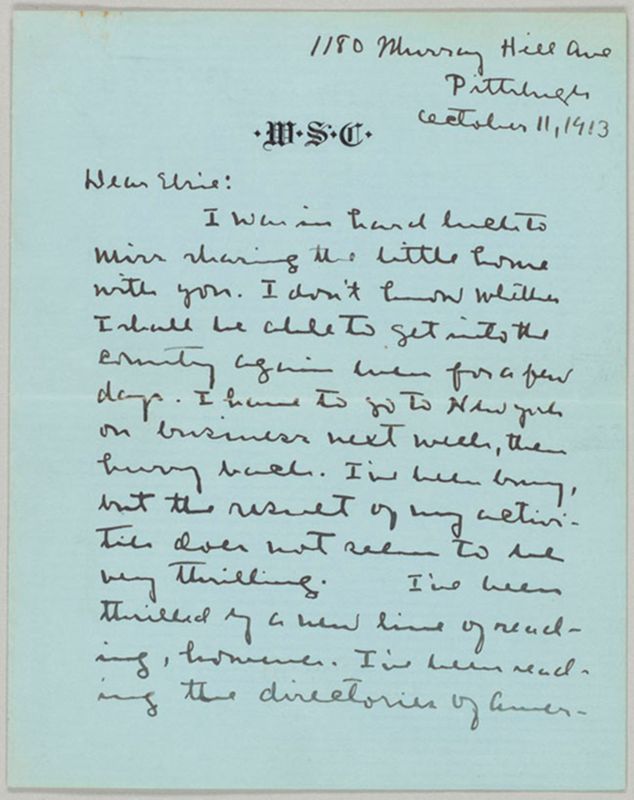 1180 Murray Hill Ave
Pittsburgh
October 11, 1913
·W·S·C·
Dear Elsie:
I was in hard luck to
miss sharing the little home
with you. I don't know whether
I shall be able to get into the
country again even for a few
days. I have to go to New York
on business next week, then
hurry back. I've been busy,
but the result of my activi-
ties does not seem to be
very thrilling. I've been
thrilled by a new line of read-
ing, however. I've been read-
ing the directories of Amer-